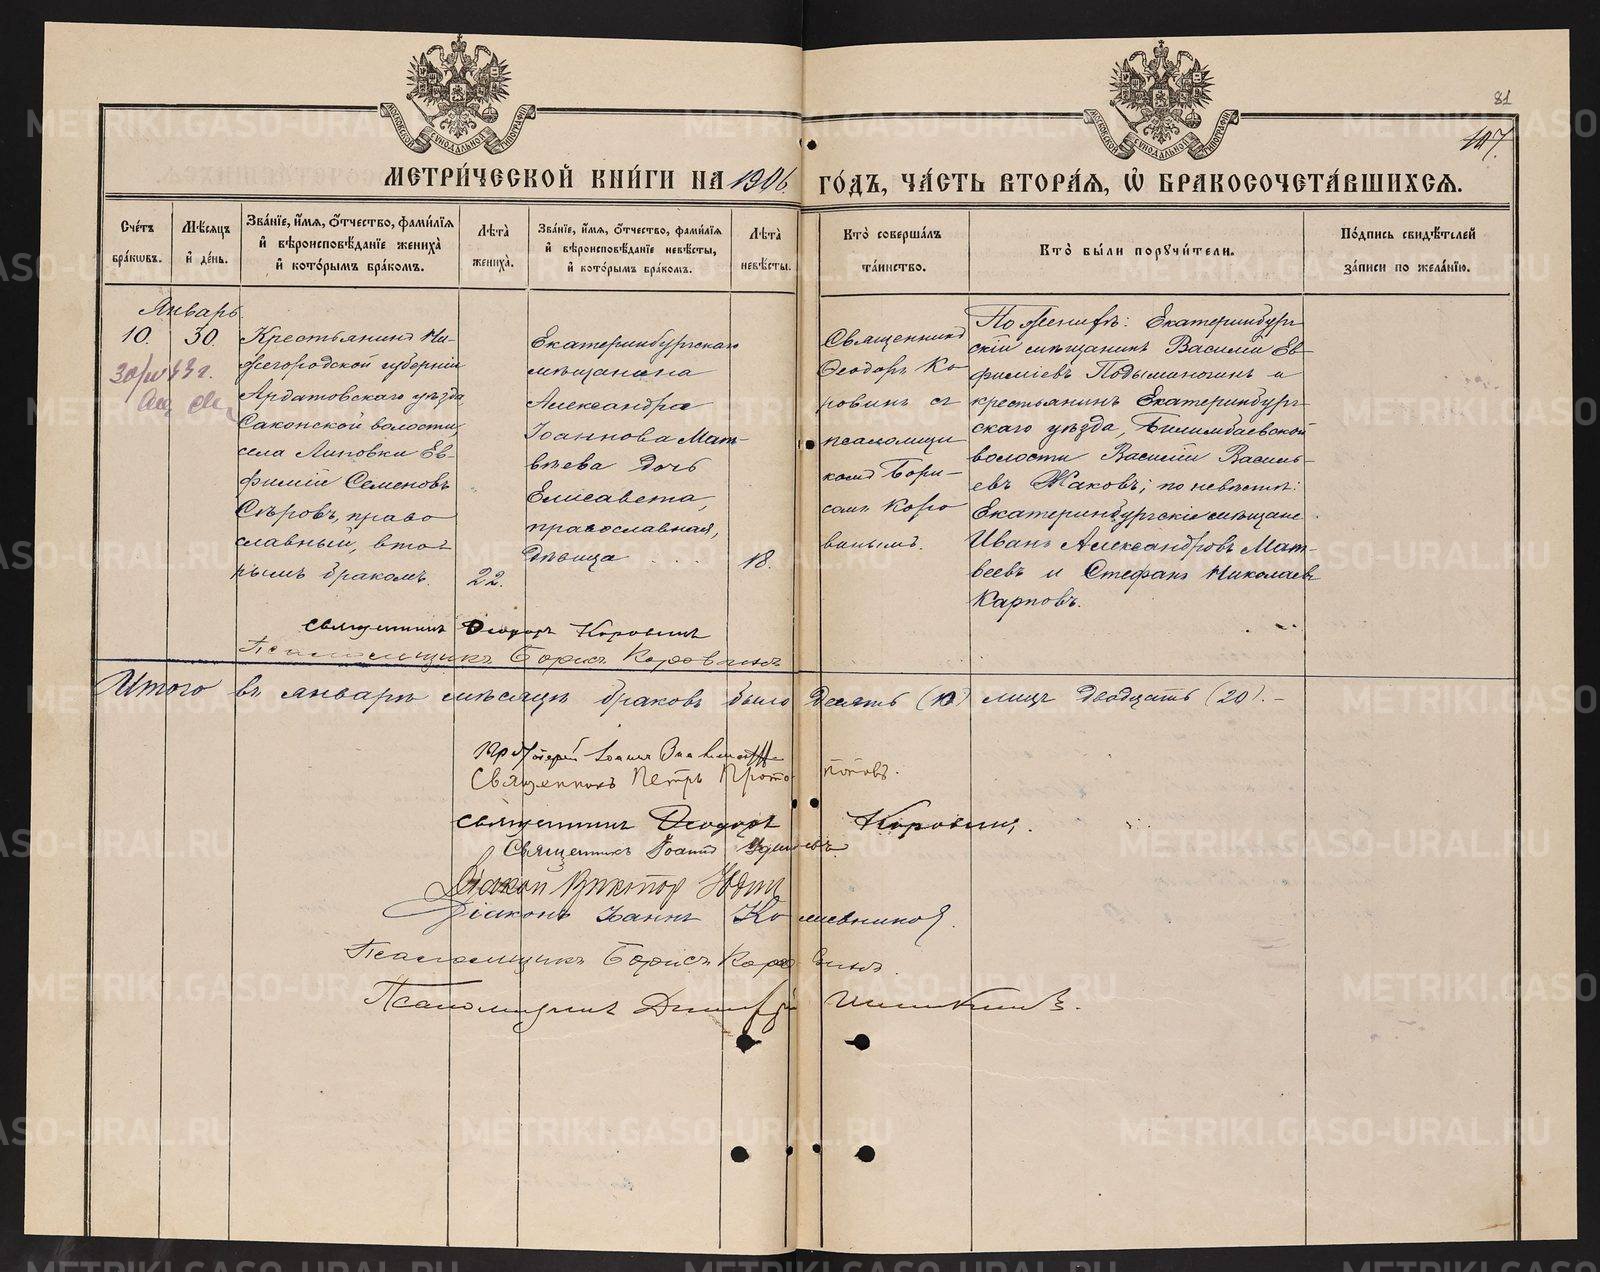 81
147.
МЕТРИ́ЧЕСКОЙ КНИ́ГИ НА 1906 ГО́ДЪ, ЧА́СТЬ ВТОРА́Я, Ѽ БРАКОСОЧЕТА́ВШИХСЯ.
Сче́тъ бра́ковъ.
Мѣ́сяцъ и҆ де́нь.
Зва́нїе, и҆́мя, ѻ҆́тчество, фами́лїя и҆ вѣроисповѣ́данїе жениха̀ и҆ кото́рымъ бра́комъ.
Лѣта̀ жениха̀.
Зва́нїе, и҆́мя, ѻ҆́тчество, фами́лїя и҆ вѣроисповѣ́данїе невѣ́сты, и҆ кото́рымъ бра́комъ.
Лѣта̀ невѣ́сты.
Кто̀ соверша́лъ та́инство.
Кто̀ бы́ли поручи́тели.
По́дпись свидѣ́телей за́писи по жела́нїю.
Январь
10.
30.
Крестьянинъ Ни-
жегородской губерніи
Ардатовскаго уѣзда
Саконской волости,
села Липовки Ев-
фимій Семеновъ
Сѣровъ, право
славный, вто-
рымъ бракомъ.
22.
Екатеринбургскаго
мѣщанина
Александра
Іоаннова Мат-
вѣева дочь
Елисавета,
православная,
дѣвица . . . .
18.
Священникъ
Ѳеодоръ Ко
ровинъ съ
псаломщи
комъ Бори-
сомъ Коро
винымъ.
По женихѣ: Екатеринбург
скій мѣщанинъ Василій Ев
фиміевъ Подыминогинъ и
крестьянинъ Екатеринбург-
скаго уѣзда, Билимбаевской
волости Василій Василь-
евъ Жаковъ; по невѣстѣ:
Екатеринбургскіе мѣщане
Иванъ Александровъ Мат-
веевъ и Стефанъ Николаевъ
Карповъ.
Священникъ Ѳеодоръ Коровинъ
Псаломщикъ Борисъ Коровинъ
Итого въ январѣ мѣсяцѣ браковъ было десять (10) лицъ двадцать (20). -
Протоіерей Іоаннъ
Священникъ Петръ Прото поповъ.
Священникъ Ѳеодоръ Коровинъ.
Священникъ Іоаннъ
Діаконъ Викторъ Юдинъ
Діаконъ Іоаннъ
Псаломщикъ Борисъ Коровинъ
Псаломщикъ Димитрій Шишкинъ.
METRIKI.GASO-URAL.RU